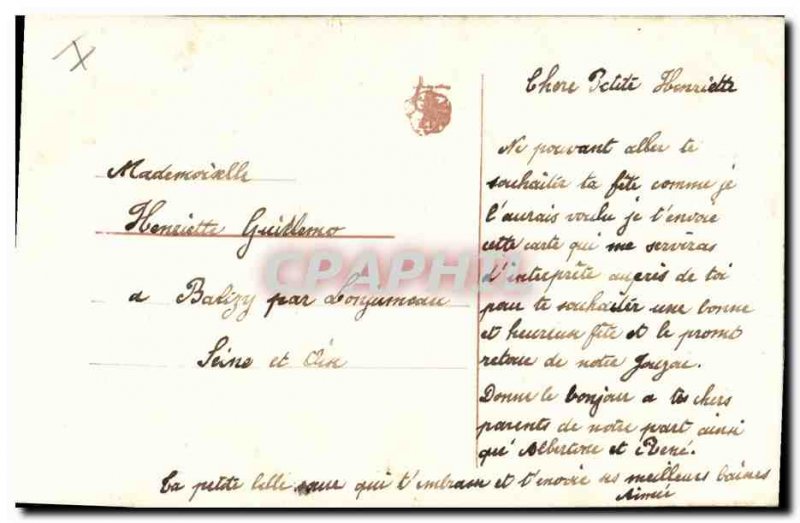 Mademoiselle
Henriette Guillemo
a Balizy par Lonjumeau
Seine et Oise
Chere Petite Henriette
Ne pouvant aller te
souhaiter ta fête comme je
l'aurais voulu je t'envoie
cette carte qui me serviras
d'interprète auprès de toi
pour te souhaiter une bonne
et heureuse fête et le promt
retour de notre
Donne le bonjour a tes chers
parents de notre part ainsi
qu' Albertine et René.
Ta petite belle sœur qui t'embrasse et t'envoie ses meilleurs baisers
Aimée
CPAPHIL